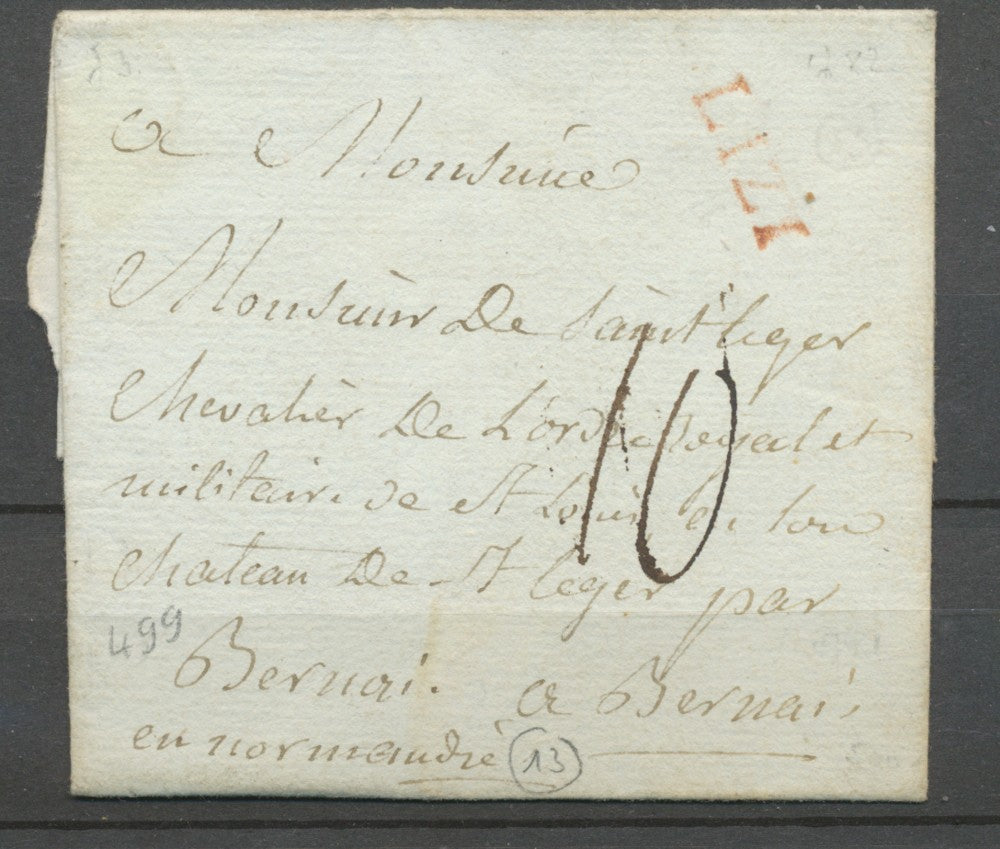 LIZI
a Monsieue
Monsieur De Saint leger
Chevalier De L'ordre Royal et
militaire de St Louis en son
10
chateau De St leger par
499
Bernai. a Bernai,
en normandie 13